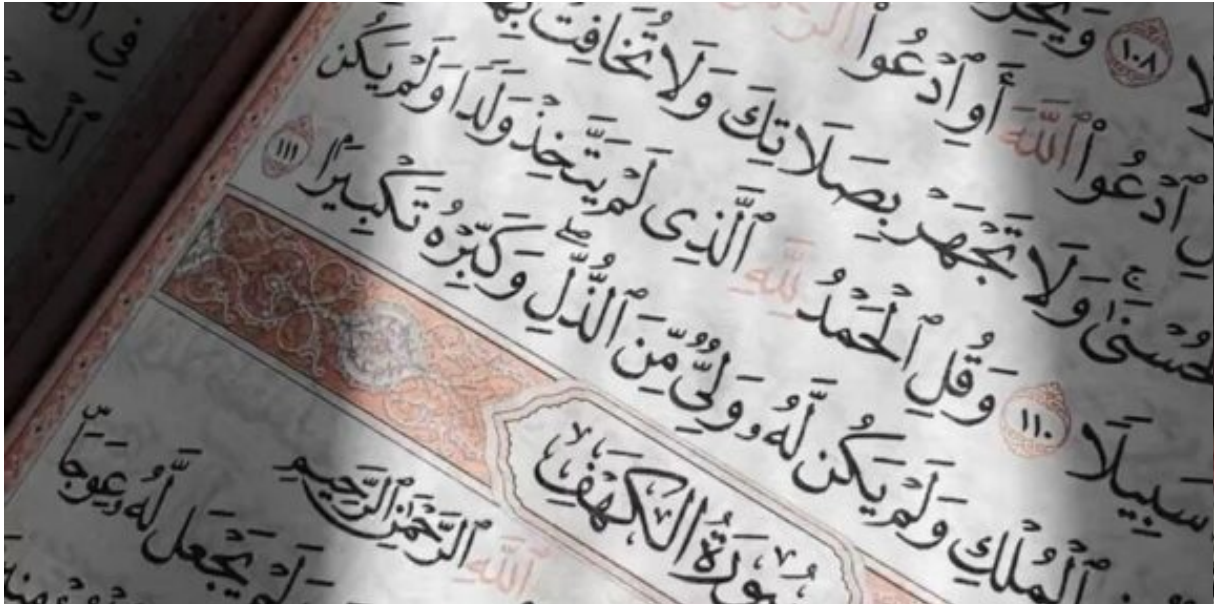 ١٠٨
ٱدْعُوا۟ ٱللَّهَ أَوِ ٱدْعُوا۟
وَلَا تَجْهَرْ بِصَلَاتِكَ وَلَا تُخَافِتْ
سَبِيلًا ١١٠ وَقُلِ ٱلْحَمْدُ لِلَّهِ ٱلَّذِى لَمْ يَتَّخِذْ وَلَدًا وَلَمْ يَكُن
ٱلْمُلْكِ وَلَمْ يَكُن لَّهُۥ وَلِىٌّ مِّنَ ٱلذُّلِّ ۖ وَكَبِّرْهُ تَكْبِيرًۢا ١١١
سُورَةُ الكَهْفِ
ٱللَّهِ ٱلرَّحْمَٰنِ ٱلرَّحِيمِ
لَمْ يَجْعَل لَّهُۥ عِوَجَاۜ